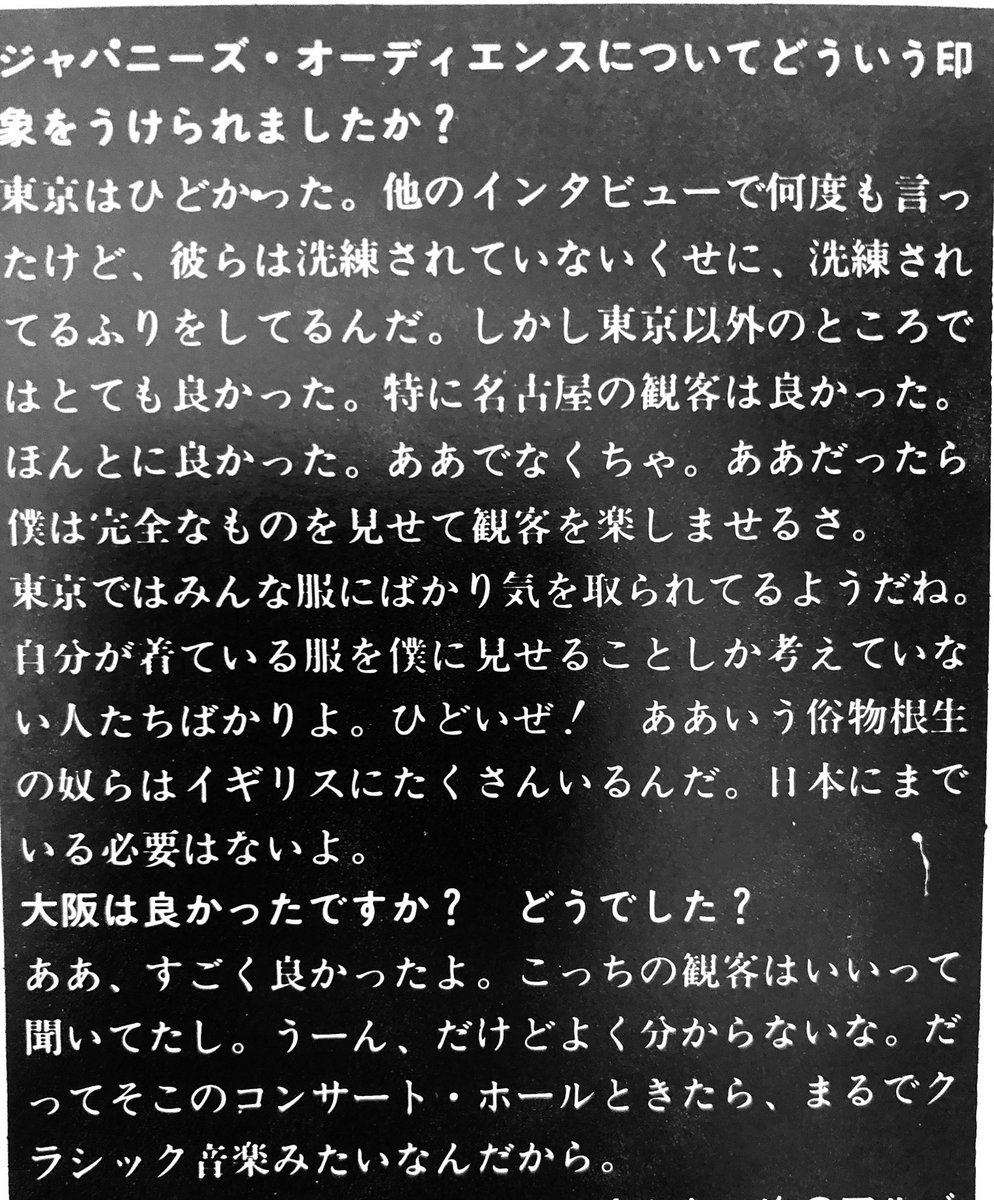 ジャパニーズ・オーディエンスについてどういう印
象をうけられましたか？
東京はひどかった。他のインタビューで何度も言っ
たけど、彼らは洗練されていないくせに、洗練され
てるふりをしてるんだ。しかし東京以外のところで
はとても良かった。特に名古屋の観客は良かった。
ほんとに良かった。ああでなくちゃ。ああだったら
僕は完全なものを見せて観客を楽しませるさ。
東京ではみんな服にばかり気を取られてるようだね。
自分が着ている服を僕に見せることしか考えていな
い人たちばかりよ。ひどいぜ！　ああいう俗物根生
の奴らはイギリスにたくさんいるんだ。日本にまで
いる必要はないよ。
大阪は良かったですか？　どうでした？
ああ、すごく良かったよ。こっちの観客はいいって
聞いてたし。うーん、だけどよく分からないな。だ
ってそこのコンサート・ホールときたら、まるでク
ラシック音楽みたいなんだから。